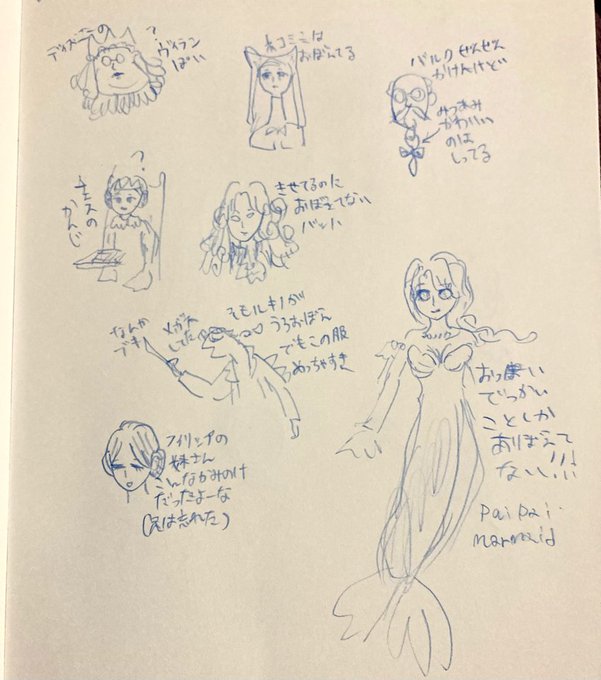 ディズニーの
?
ヴィラン
ぽい
ネコミミは
おぼえてる
バルクぜんぜん
かけんけど
みつあみ
かわいい
のは
しってる
?
チェスの
かんじ
きせてるのに
おぼえてない
バット
なんか
ブキ
メガネ
してた
そもルキノが
うろおぼえ
でもこの服
めっちゃすき
フィリップの
妹さん
こんなかみのけ
だったよーな
(兄は忘れた)
おっぱい
でっかい
ことしか
おぼえて
ない!!!
Pai Pai・
Marmaid